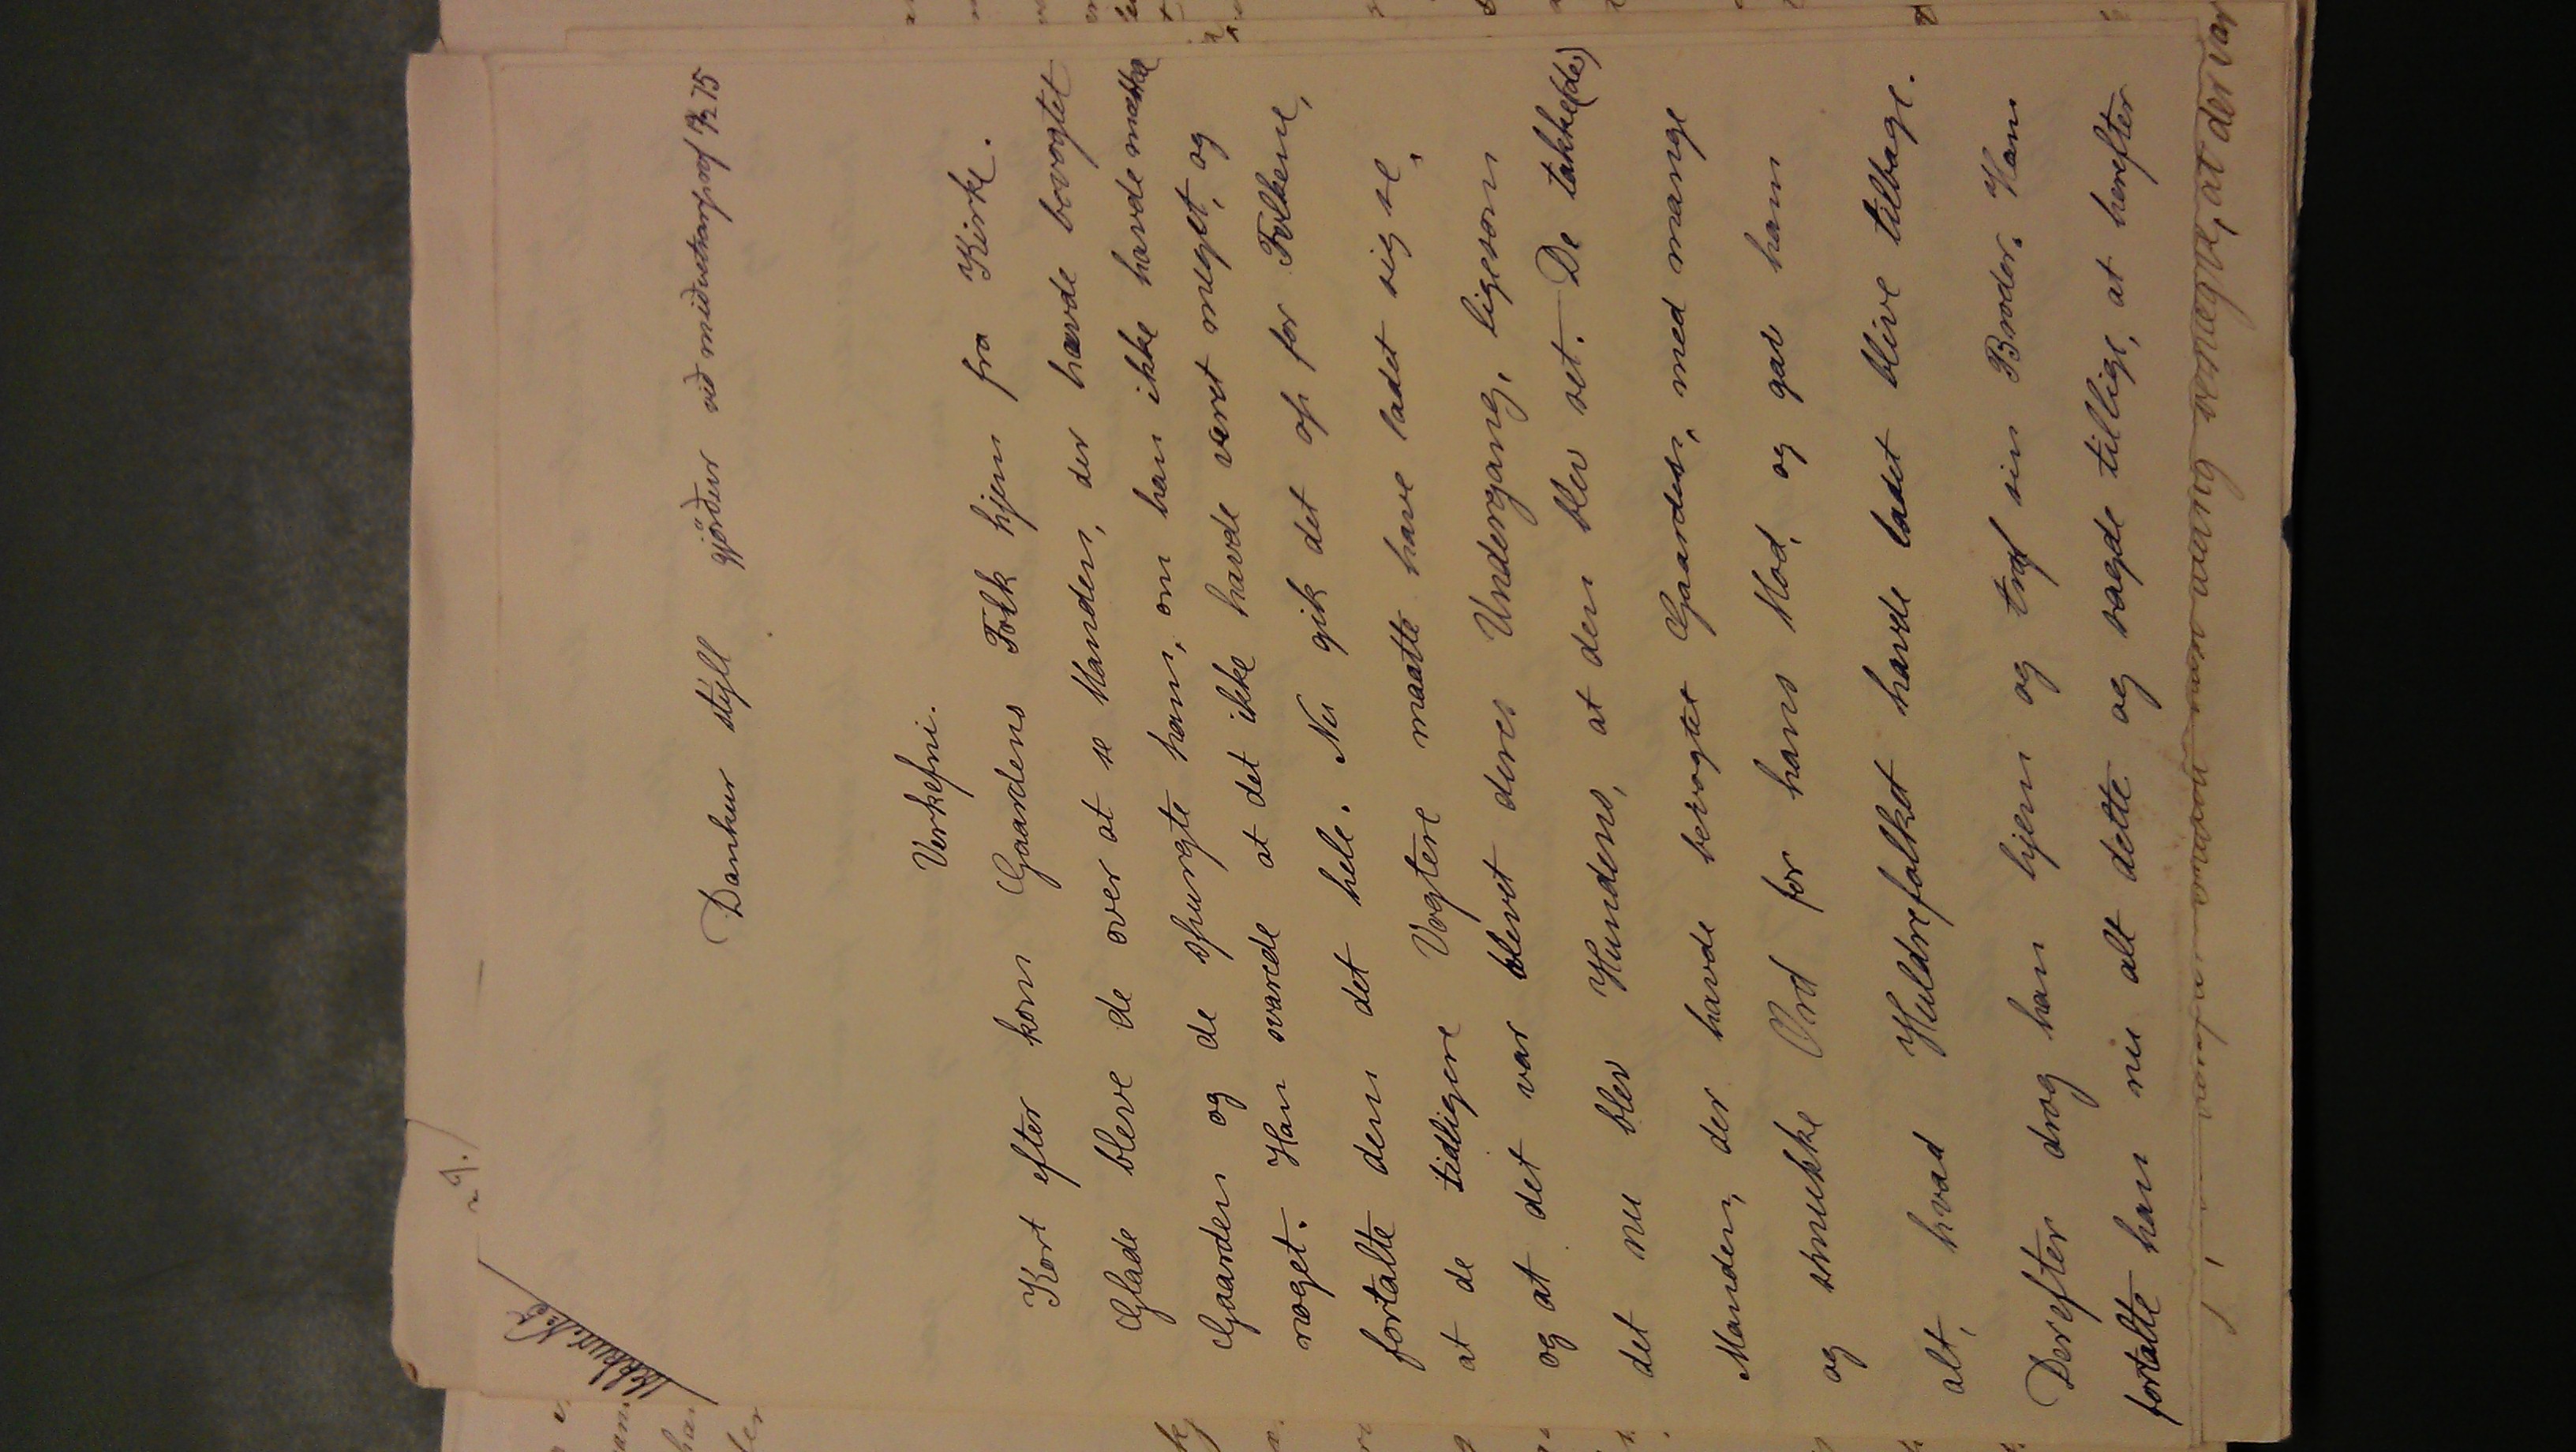 Danskur stýll gjörður við miðsvetrarpróf 75
Verkefni.
Kort efter kom Gaardens Folk hjem fra Kirke.
Glade bleve de over at se Manden, der havde bevogtet
Gaarden og de spurgte ham, om han ikke havde mærket
noget. Han svarede at det ikke havde været meget, og
fortalte dem det hele. Nu gik det op for Folkene,
at de tidligere Vogtere maatte have ladet sig se,
og at det var blevet deres Undergang, ligesom
det nu blev Hundens, at den blev set. De takke(de)
Manden, der havde bevogtet Gaarden, med mange
og smukke Ord for hans Mod, og gav ham
alt, hvad Huldrefolket havde ladet blive tilbage.
Derefter drog han hjem og traf sin Broder. Ham
fortalte han nu alt dette og sagde tillige, at herefter